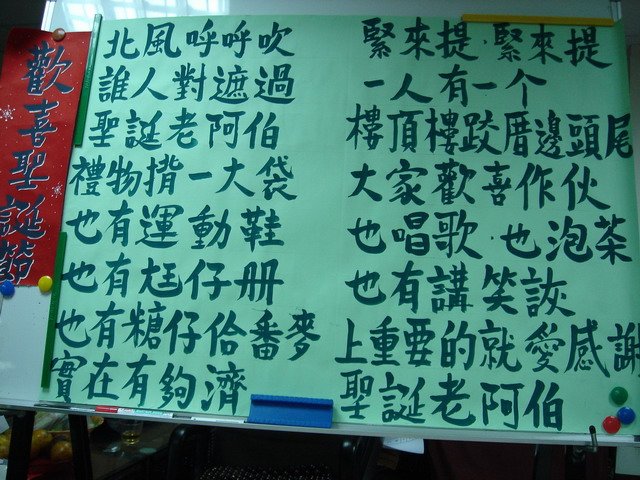 歡喜聖誕節
北風呼呼吹
誰人對遮過
聖誕老阿伯
禮物揹一大袋
也有運動鞋
也有尪仔册
也有糖仔佮番麥
實在有夠濟
緊來提．緊來提
一人有一个
樓頂樓跤厝邊頭尾
大家歡喜作伙
也唱歌．也泡茶
也有講笑詼
上重要的就愛感謝
聖誕老阿伯